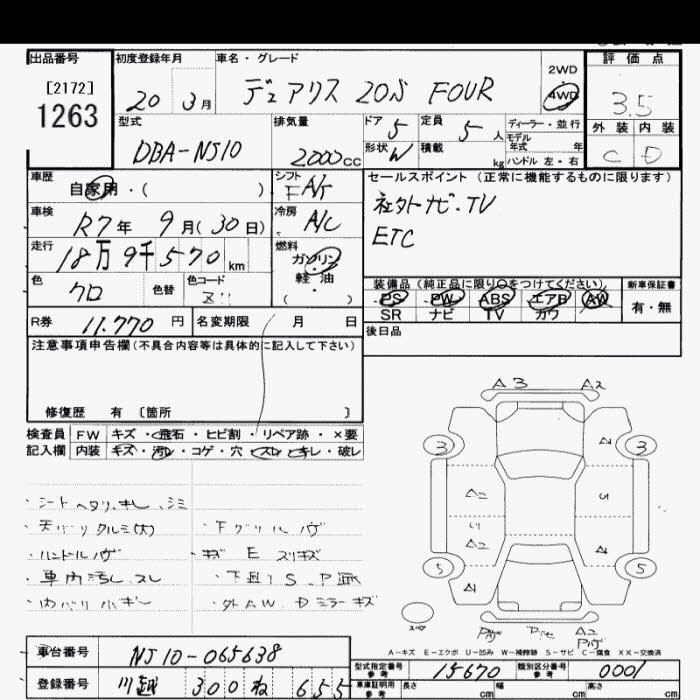 出品番号 初度登録年月 車名・グレード 評価点
[2172]
1263
20 3月 デュアリス 20S FOUR 2WD 4WD 3.5
型式 排気量 ドア 5 定員 5人 ディーラー・並行 外装 内装
DBA-NJ10 2000cc 形状 W 積載 kg モデル年式 年 ハンドル 左・右 C D
車歴 自家用・( ) シフト FA/T セールスポイント (正常に機能するものに限ります)
車検 R7年 9月(30日) 冷房 A/C 社外ナビ.TV
ETC
走行 18万9千570km 燃料 ガソリン 軽・油 ( )
色 クロ 色替 色コード 装備品 (純正品に限り○をつけてください) 新車保証書
PS PW ABS エアB AW 有・無
SR ナビ TV カワ
R券 11.770円 名変期限 月 日 後日品
注意事項申告欄(不具合内容等は具体的に記入して下さい)
修復歴 有 〔箇所 〕
検査員 FW キズ・飛石・ヒビ割・リペア跡・×要
記入欄 内装 キズ・汚レ・コゲ・穴・スレ・キレ・破レ
A3 A2
3 3
A2
A2
5 5
A2
・シートヘタリ.キレ.シミ
・天バリタルミ(大) ・Fグリルハゲ
・ハンドルハゲ ・キズ E スリキズ
・車内汚レ.スレ ・下廻りS.P跡
・内バリハギレ ・外AW.Dミラーキズ
スペア
A-キズ E-エクボ U-凹み W-補修跡 S-サビ C-腐食 XX-交換済
車台番号 NJ10-065638 型式指定番号 参考 15670 類別区分番号 参考 0001
登録番号 川越 300 ね 655 車庫証明用 参考 長さ cm 幅 cm 高さ cm